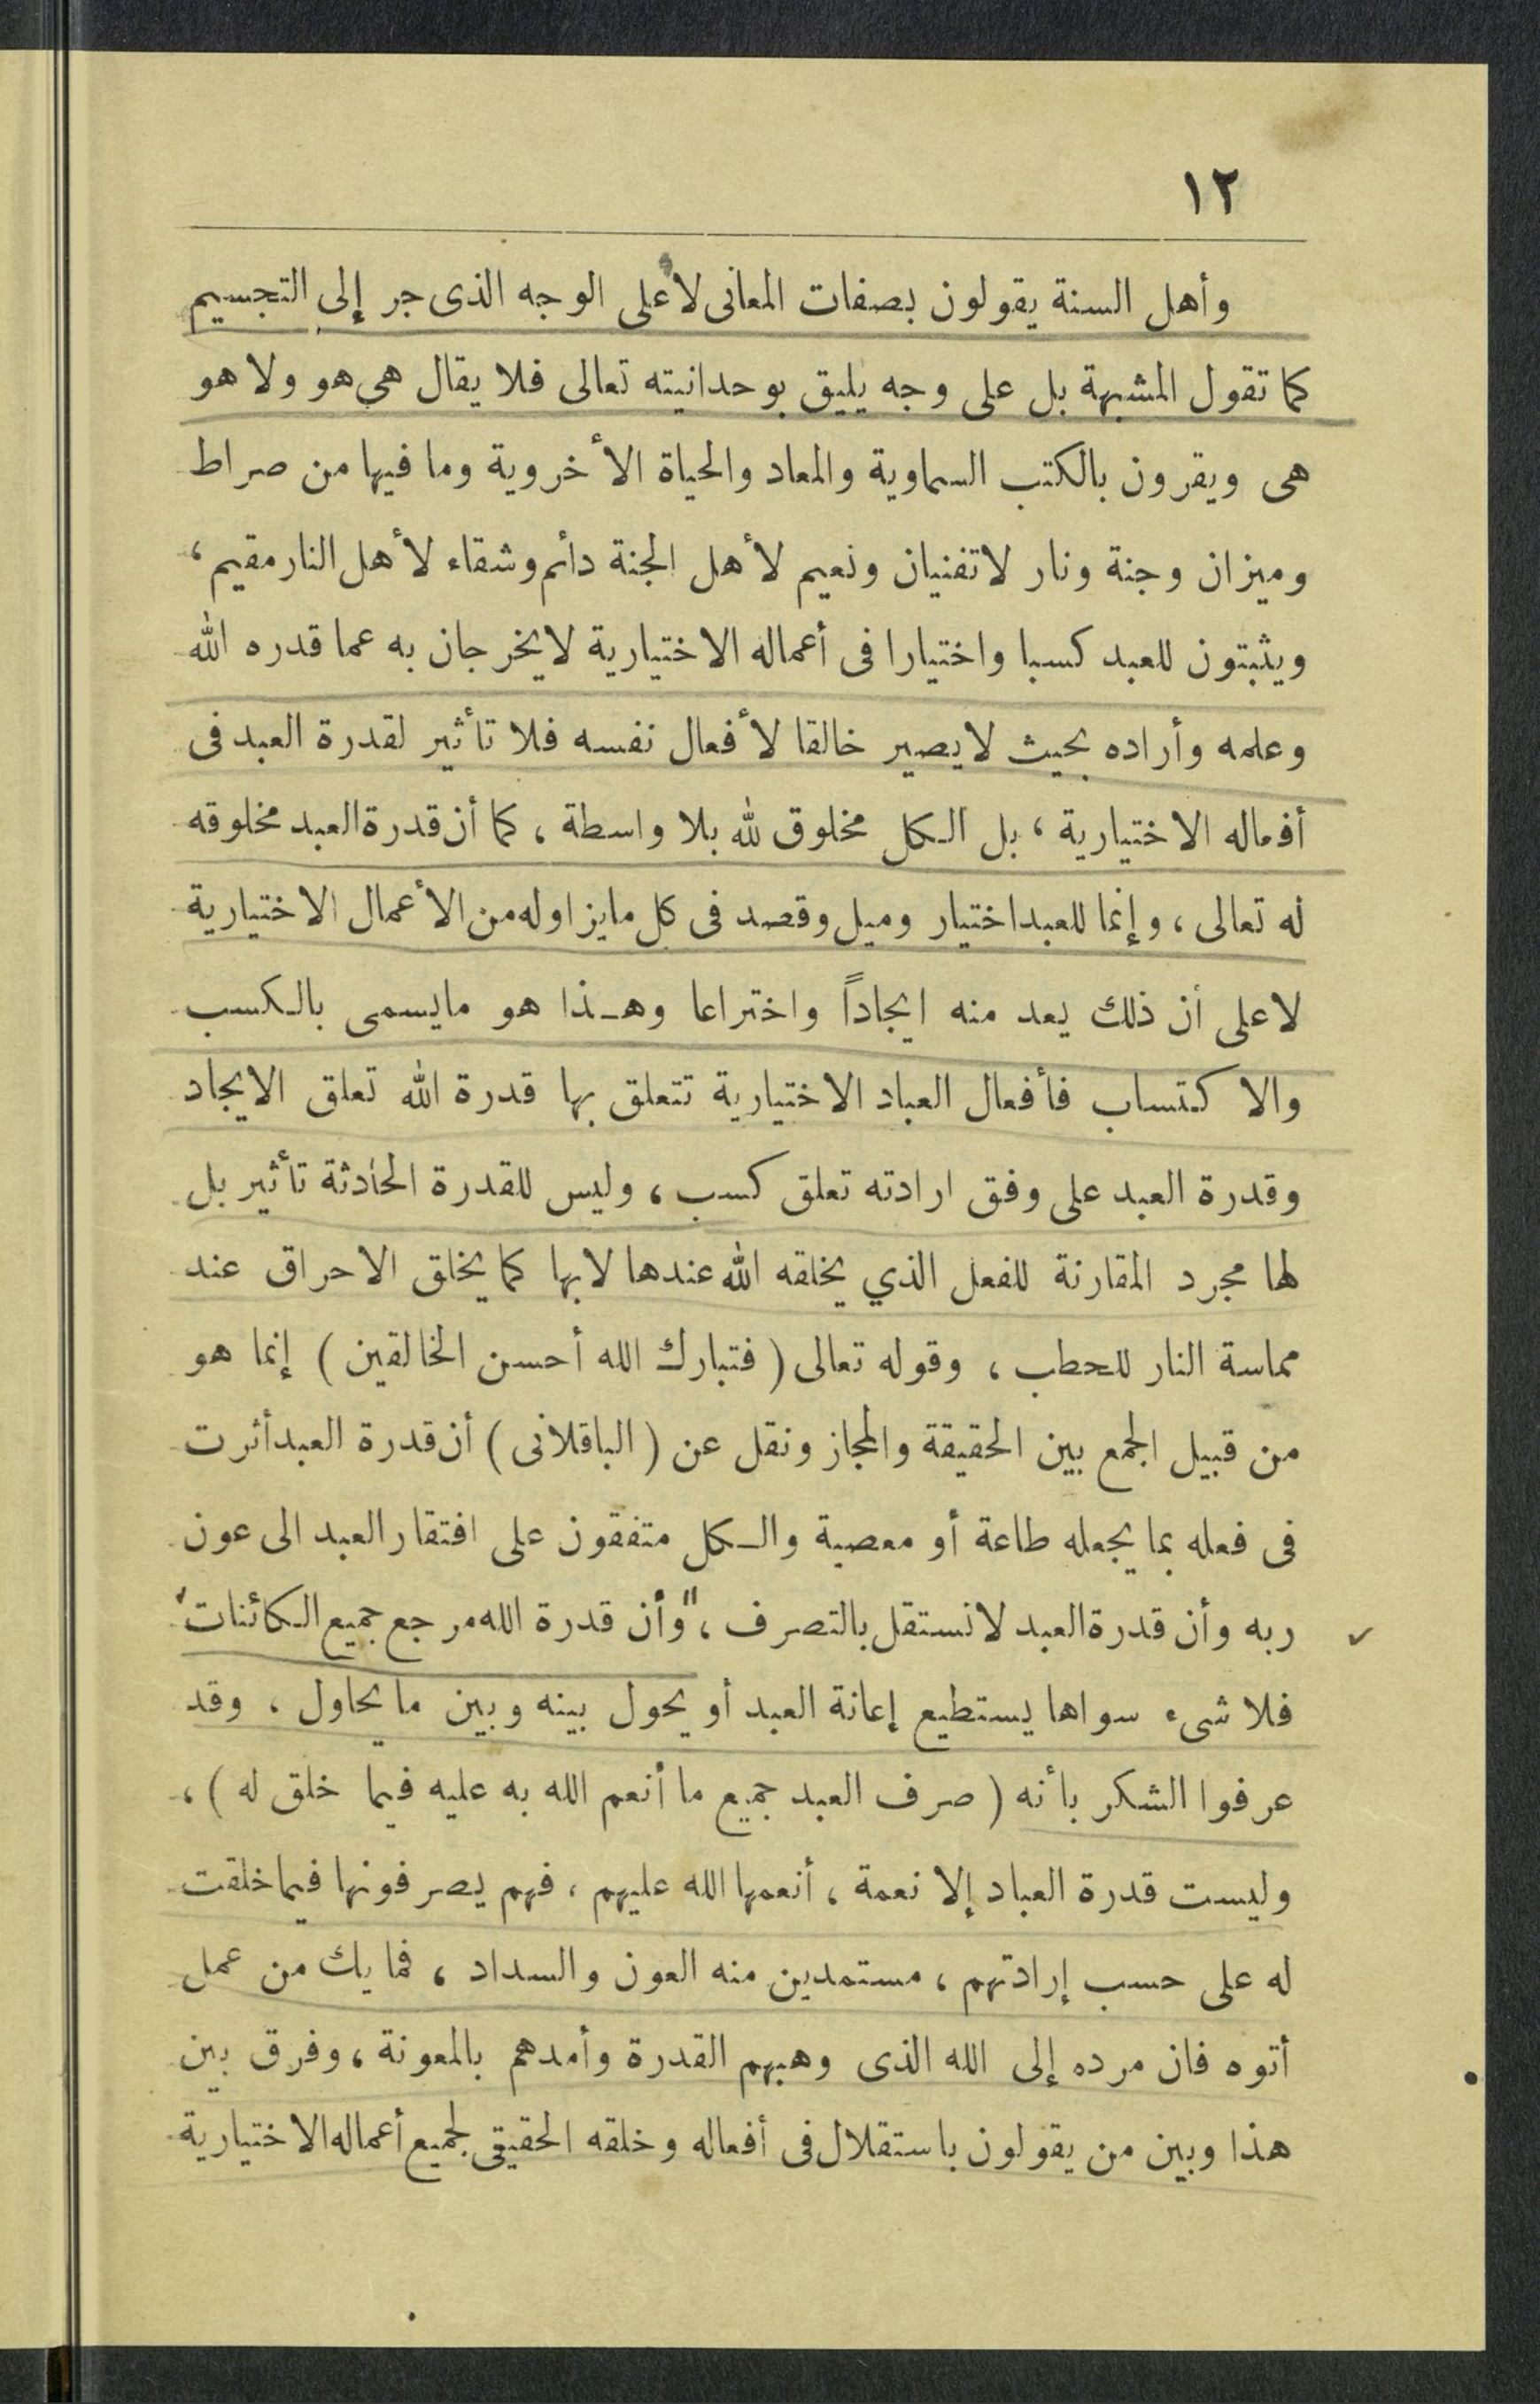 ١٢
وأهل السنة يقولون بصفات المعانى لا على الوجه الذى جر إلى التجسيم
كما تقول المشبهة بل على وجه يليق بوحدانيته تعالى فلا يقال هى هو ولا هو
هى ويقرون بالكتب السماوية والمعاد والحياة الأخروية وما فيها من صراط
وميزان وجنة ونار لاتفنيان ونعيم لأهل الجنة دأئم وشقاء لأهل النار مقيم ،
ويثبتون للعبد كسبا واختيارا فى أعماله الاختيارية لايخرجان به عما قدره الله
وعلمه وأراده بحيث لايصير خالقا لأفعال نفسه فلا تأثير لقدرة العبد فى
أفعاله الاختيارية ، بل الكل مخلوق لله بلا واسطة ، كما أن قدرة العبد مخلوقه
له تعالى ، وإنما للعبد اختيار وميل وقصد فى كل مايزاوله من الأعمال الاختيارية
لاعلى أن ذلك يعد منه ايجاداً واختراعا وهـذا هو مايسمى بالكسب
والاكتساب فأفعال العباد الاختيارية تتعلق بها قدرة الله تعلق الايجاد
وقدرة العبد على وفق ارادته تعلق كسب ، وليس للقدرة الحادثة تأثير بل
لها مجرد المقارنة للفعل الذي يخلقه الله عندها لابها كما يخلق الاحراق عند
مماسة النار للحطب ، وقوله تعالى ( فتبارك الله أحسن الخالقين ) إنما هو
من قبيل الجمع بين الحقيقة والمجاز ونقل عن ( الباقلانى ) أن قدرة العبد أثرت
فى فعله بما يجعله طاعة أو معصية والـكل متفقون على افتقار العبد الى عون
ربه وأن قدرة العبد لاتستقل بالتصرف ، "وأن قدرة الله مرجع جميع الـكائنات"
فلا شىء سواها يستطيع إعانة العبد أو يحول بينه وبين ما يحاول ، وقد
عرفوا الشكر بأنه ( صرف العبد جميع ما أنعم الله به عليه فيما خلق له ) ،
وليست قدرة العباد إلا نعمة ، أنعمها الله عليهم ، فهم يصرفونها فيما خلقت
له على حسب إرادتهم ، مستمدين منه العون والسداد ، فما يك من عمل
أتوه فان مرده إلى الله الذى وهبهم القدرة وأمدهم بالمعونة ، وفرق بين
هذا وبين من يقولون باستقلال فى أفعاله وخلقه الحقيقى لجميع أعماله الاختيارية